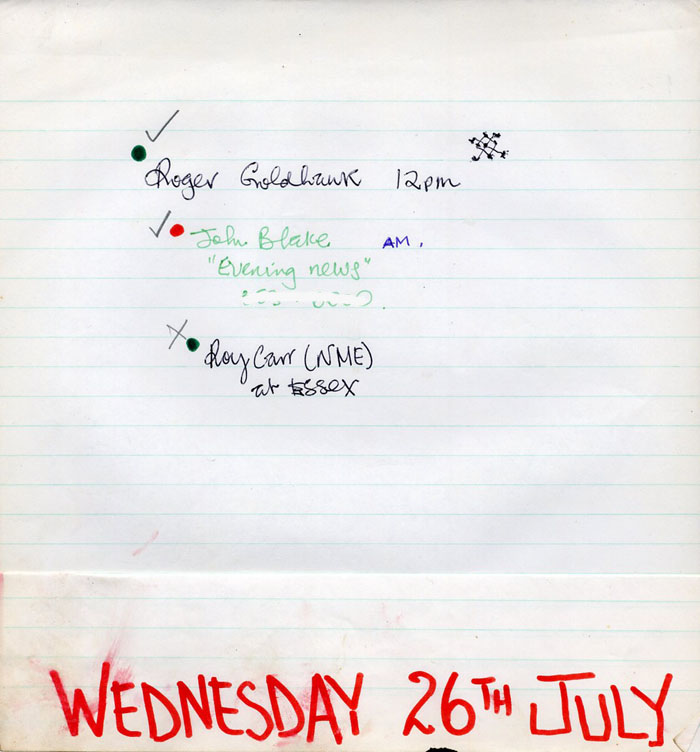 Roger Goldhawk 12pm
John Blake AM.
"Evening news"
Roy Carr (NME)
at Essex
WEDNESDAY 26TH JULY